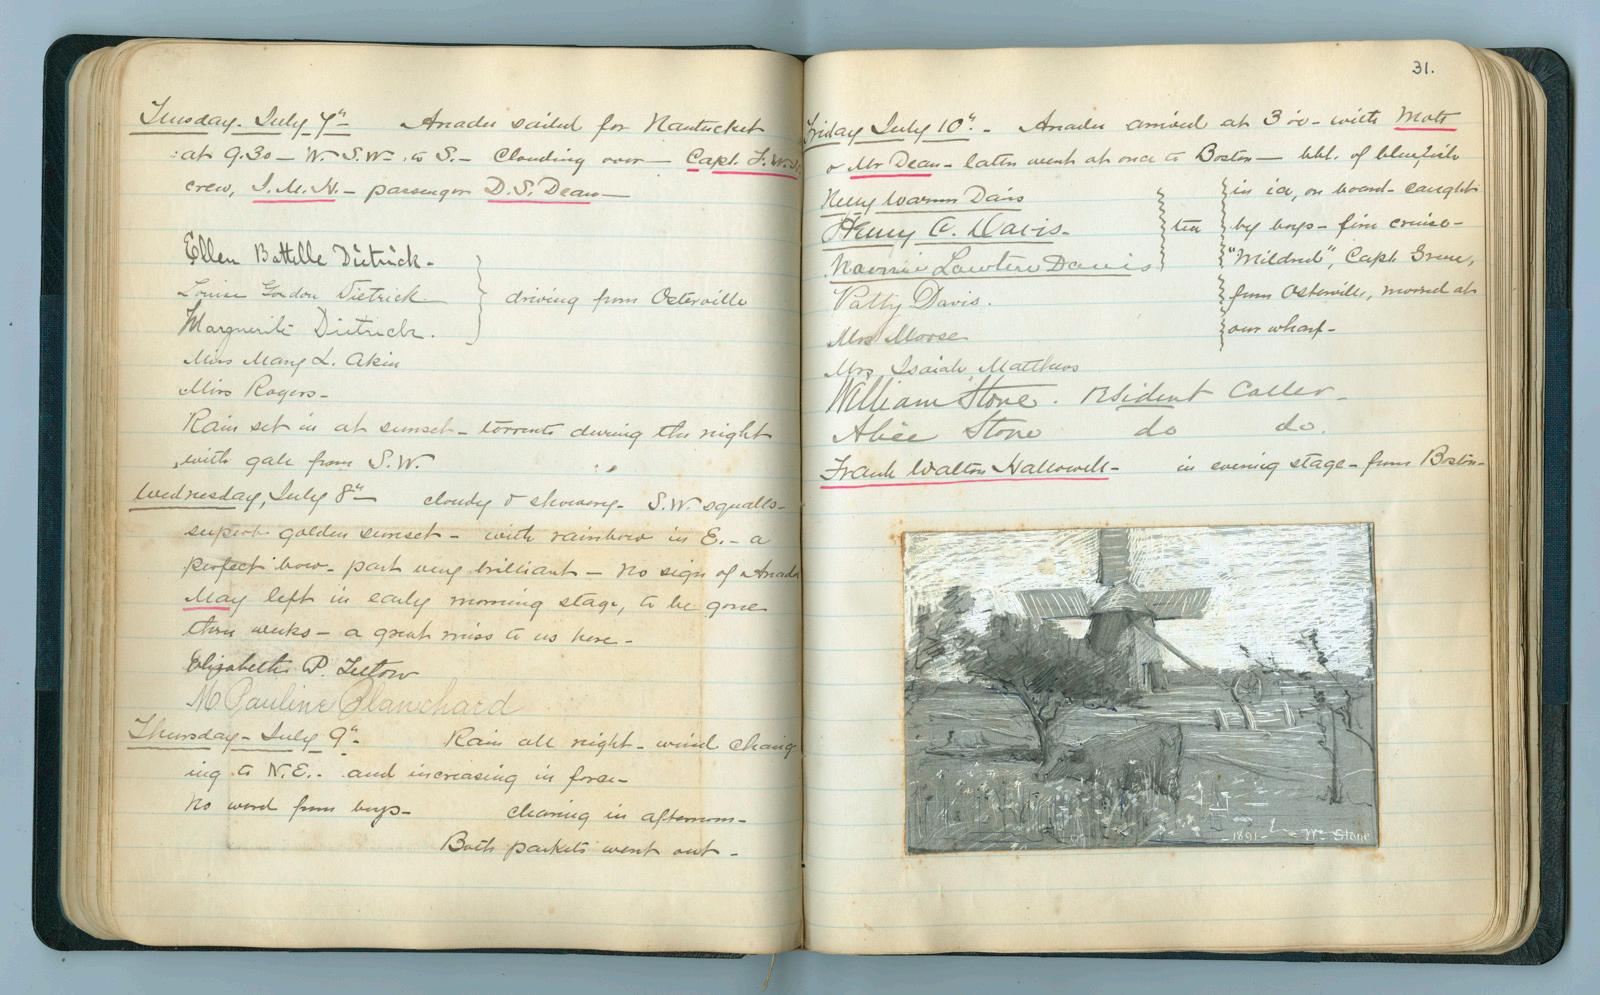 Tuesday. July 7" Anadu sailed for Nantucket
at 9.30 — W.S.W. to S. — Clouding over — Capt. F.W.
crew, I.M.H. — passenger D.S. Dean —
Ellen Battelle Dietrick.
Louise Gordon Dietrick } driving from Osterville
Marguerite Dietrick.
Miss Mary L. Akin
Miss Rogers —
Rain set in at sunset — torrents during the night
with gale from S.W.
Wednesday, July 8" — cloudy & showery — S.W. squalls —
superb golden sunset — with rainbow in E. — a
perfect bow — part very brilliant — no sign of Anadu
May left in early morning stage, to be gone
three weeks — a great miss to us here —
Elizabeth P.
M Pauline Blanchard
Thursday — July 9". Rain all night — wind chang
ing to N.E. — and increasing in force —
No word from boys — clearing in afternoon —
Both packets went out —
31.
Friday July 10". — Anadu arrived at 3 — with Mott
& Mr Dean — latter went at once to Boston — bbl. of bluefish
Davis } in ice, on board — caught
Henry C. Davis. } tea } by boys — fine cruise —
Nannie Davis } "Mildred", Capt.
Patty Davis. } from Osterville, moored at
Mrs Morse } our wharf —
Mrs Isaiah Matthews
William Stone. Resident Caller —
Alice Stone do do.
Frank Walton Hallowell — in evening stage — from Boston —
1891 — Wm Stone